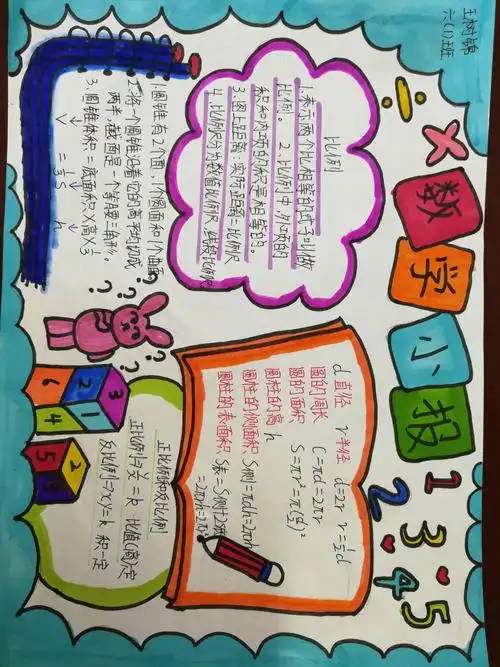 王树锦
六(1)班
数学小报
÷
×
1 2 3 4 5
比例
1.表示两个比相等的式子叫做
比例。 2.比例中,外项的
积和内项的积是相等的。
3.图上距离:实际距离=比例尺
4.比例尺分为数值比例尺,线段比例尺
1.圆锥有2个面,1个圆面和1个曲面
2.将一个圆锥沿着它的高平均切成
两半,截面是一个等腰三角形。
3.圆锥体积=底面积×高×1/3
V = 1/3 S h
d 直径 r 半径 d=2r r=1/2d
圆的周长 C=πd=2πr
圆的面积 S=πr²=π(d/2)²
圆柱的高 h
圆柱的侧面积 S侧=πdh=2πrh
圆柱的表面积 S表=S侧+2
=2πrh+2πr²
正比例和反比例
正比例→y/x=k 比值(商)一定
反比例→xy=k 积一定
? ? ? ? ?
3 2 1 6 4
2 5